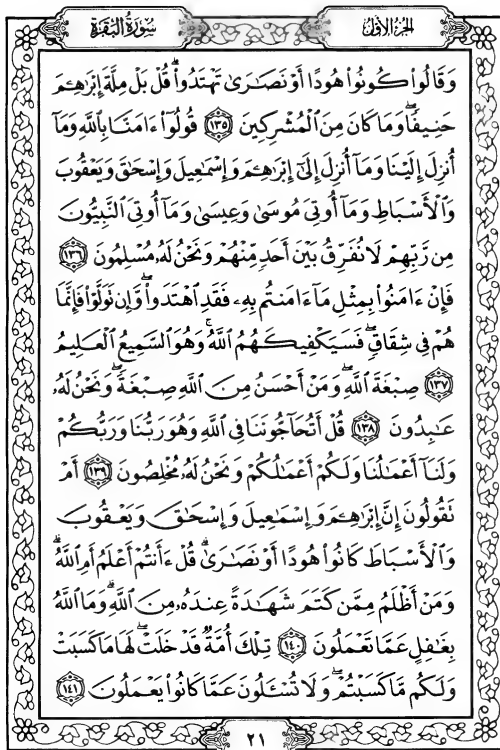 سُورَةُ البَقَرَةِ الجُزءُ الأَوَّلُ
وَقَالُواْ كُونُواْ هُودًا أَوْ نَصَٰرَىٰ تَهْتَدُواْۗ قُلْ بَلْ مِلَّةَ إِبْرَٰهِـۧمَ
حَنِيفًاۖ وَمَا كَانَ مِنَ ٱلْمُشْرِكِينَ ١٣٥ قُولُوٓاْ ءَامَنَّا بِٱللَّهِ وَمَآ
أُنزِلَ إِلَيْنَا وَمَآ أُنزِلَ إِلَىٰٓ إِبْرَٰهِـۧمَ وَإِسْمَٰعِيلَ وَإِسْحَٰقَ وَيَعْقُوبَ
وَٱلْأَسْبَاطِ وَمَآ أُوتِيَ مُوسَىٰ وَعِيسَىٰ وَمَآ أُوتِيَ ٱلنَّبِيُّونَ
مِن رَّبِّهِمْ لَا نُفَرِّقُ بَيْنَ أَحَدٍ مِّنْهُمْ وَنَحْنُ لَهُۥ مُسْلِمُونَ ١٣٦
فَإِنْ ءَامَنُواْ بِمِثْلِ مَآ ءَامَنتُم بِهِۦ فَقَدِ ٱهْتَدَواْۖ وَّإِن تَوَلَّوْاْ فَإِنَّمَا
هُمْ فِي شِقَاقٍۖ فَسَيَكْفِيكَهُمُ ٱللَّهُۚ وَهُوَ ٱلسَّمِيعُ ٱلْعَلِيمُ
١٣٧ صِبْغَةَ ٱللَّهِۖ وَمَنْ أَحْسَنُ مِنَ ٱللَّهِ صِبْغَةًۖ وَنَحْنُ لَهُۥ
عَٰبِدُونَ ١٣٨ قُلْ أَتُحَآجُّونَنَا فِي ٱللَّهِ وَهُوَ رَبُّنَا وَرَبُّكُمْ
وَلَنَآ أَعْمَٰلُنَا وَلَكُمْ أَعْمَٰلُكُمْ وَنَحْنُ لَهُۥ مُخْلِصُونَ ١٣٩ أَمْ
تَقُولُونَ إِنَّ إِبْرَٰهِـۧمَ وَإِسْمَٰعِيلَ وَإِسْحَٰقَ وَيَعْقُوبَ
وَٱلْأَسْبَاطَ كَانُواْ هُودًا أَوْ نَصَٰرَىٰۗ قُلْ ءَأَنتُمْ أَعْلَمُ أَمِ ٱللَّهُۗ
وَمَنْ أَظْلَمُ مِمَّن كَتَمَ شَهَٰدَةً عِندَهُۥ مِنَ ٱللَّهِۗ وَمَا ٱللَّهُ
بِغَٰفِلٍ عَمَّا تَعْمَلُونَ ١٤٠ تِلْكَ أُمَّةٌ قَدْ خَلَتْۖ لَهَا مَا كَسَبَتْ
وَلَكُم مَّا كَسَبْتُمْۖ وَلَا تُسْـَٔلُونَ عَمَّا كَانُواْ يَعْمَلُونَ ١٤١
٢١